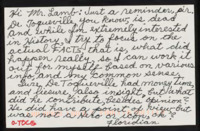 Hi Mr. Lamb: Just a reminder, sir,
De Toqueville, you know, is dead
and while I'm extremely interested
in History, I try to focus on the
actual FACTS; that is, what did
happen really, so I can work it
out for myself based on various
info and my common sense.
Sure, Toqueville had money, time,
and leisure, also insight, but what
did he contribute, besides opinion?
He did have a point of view, but
was not a Hero or icon, ok?
Floridian